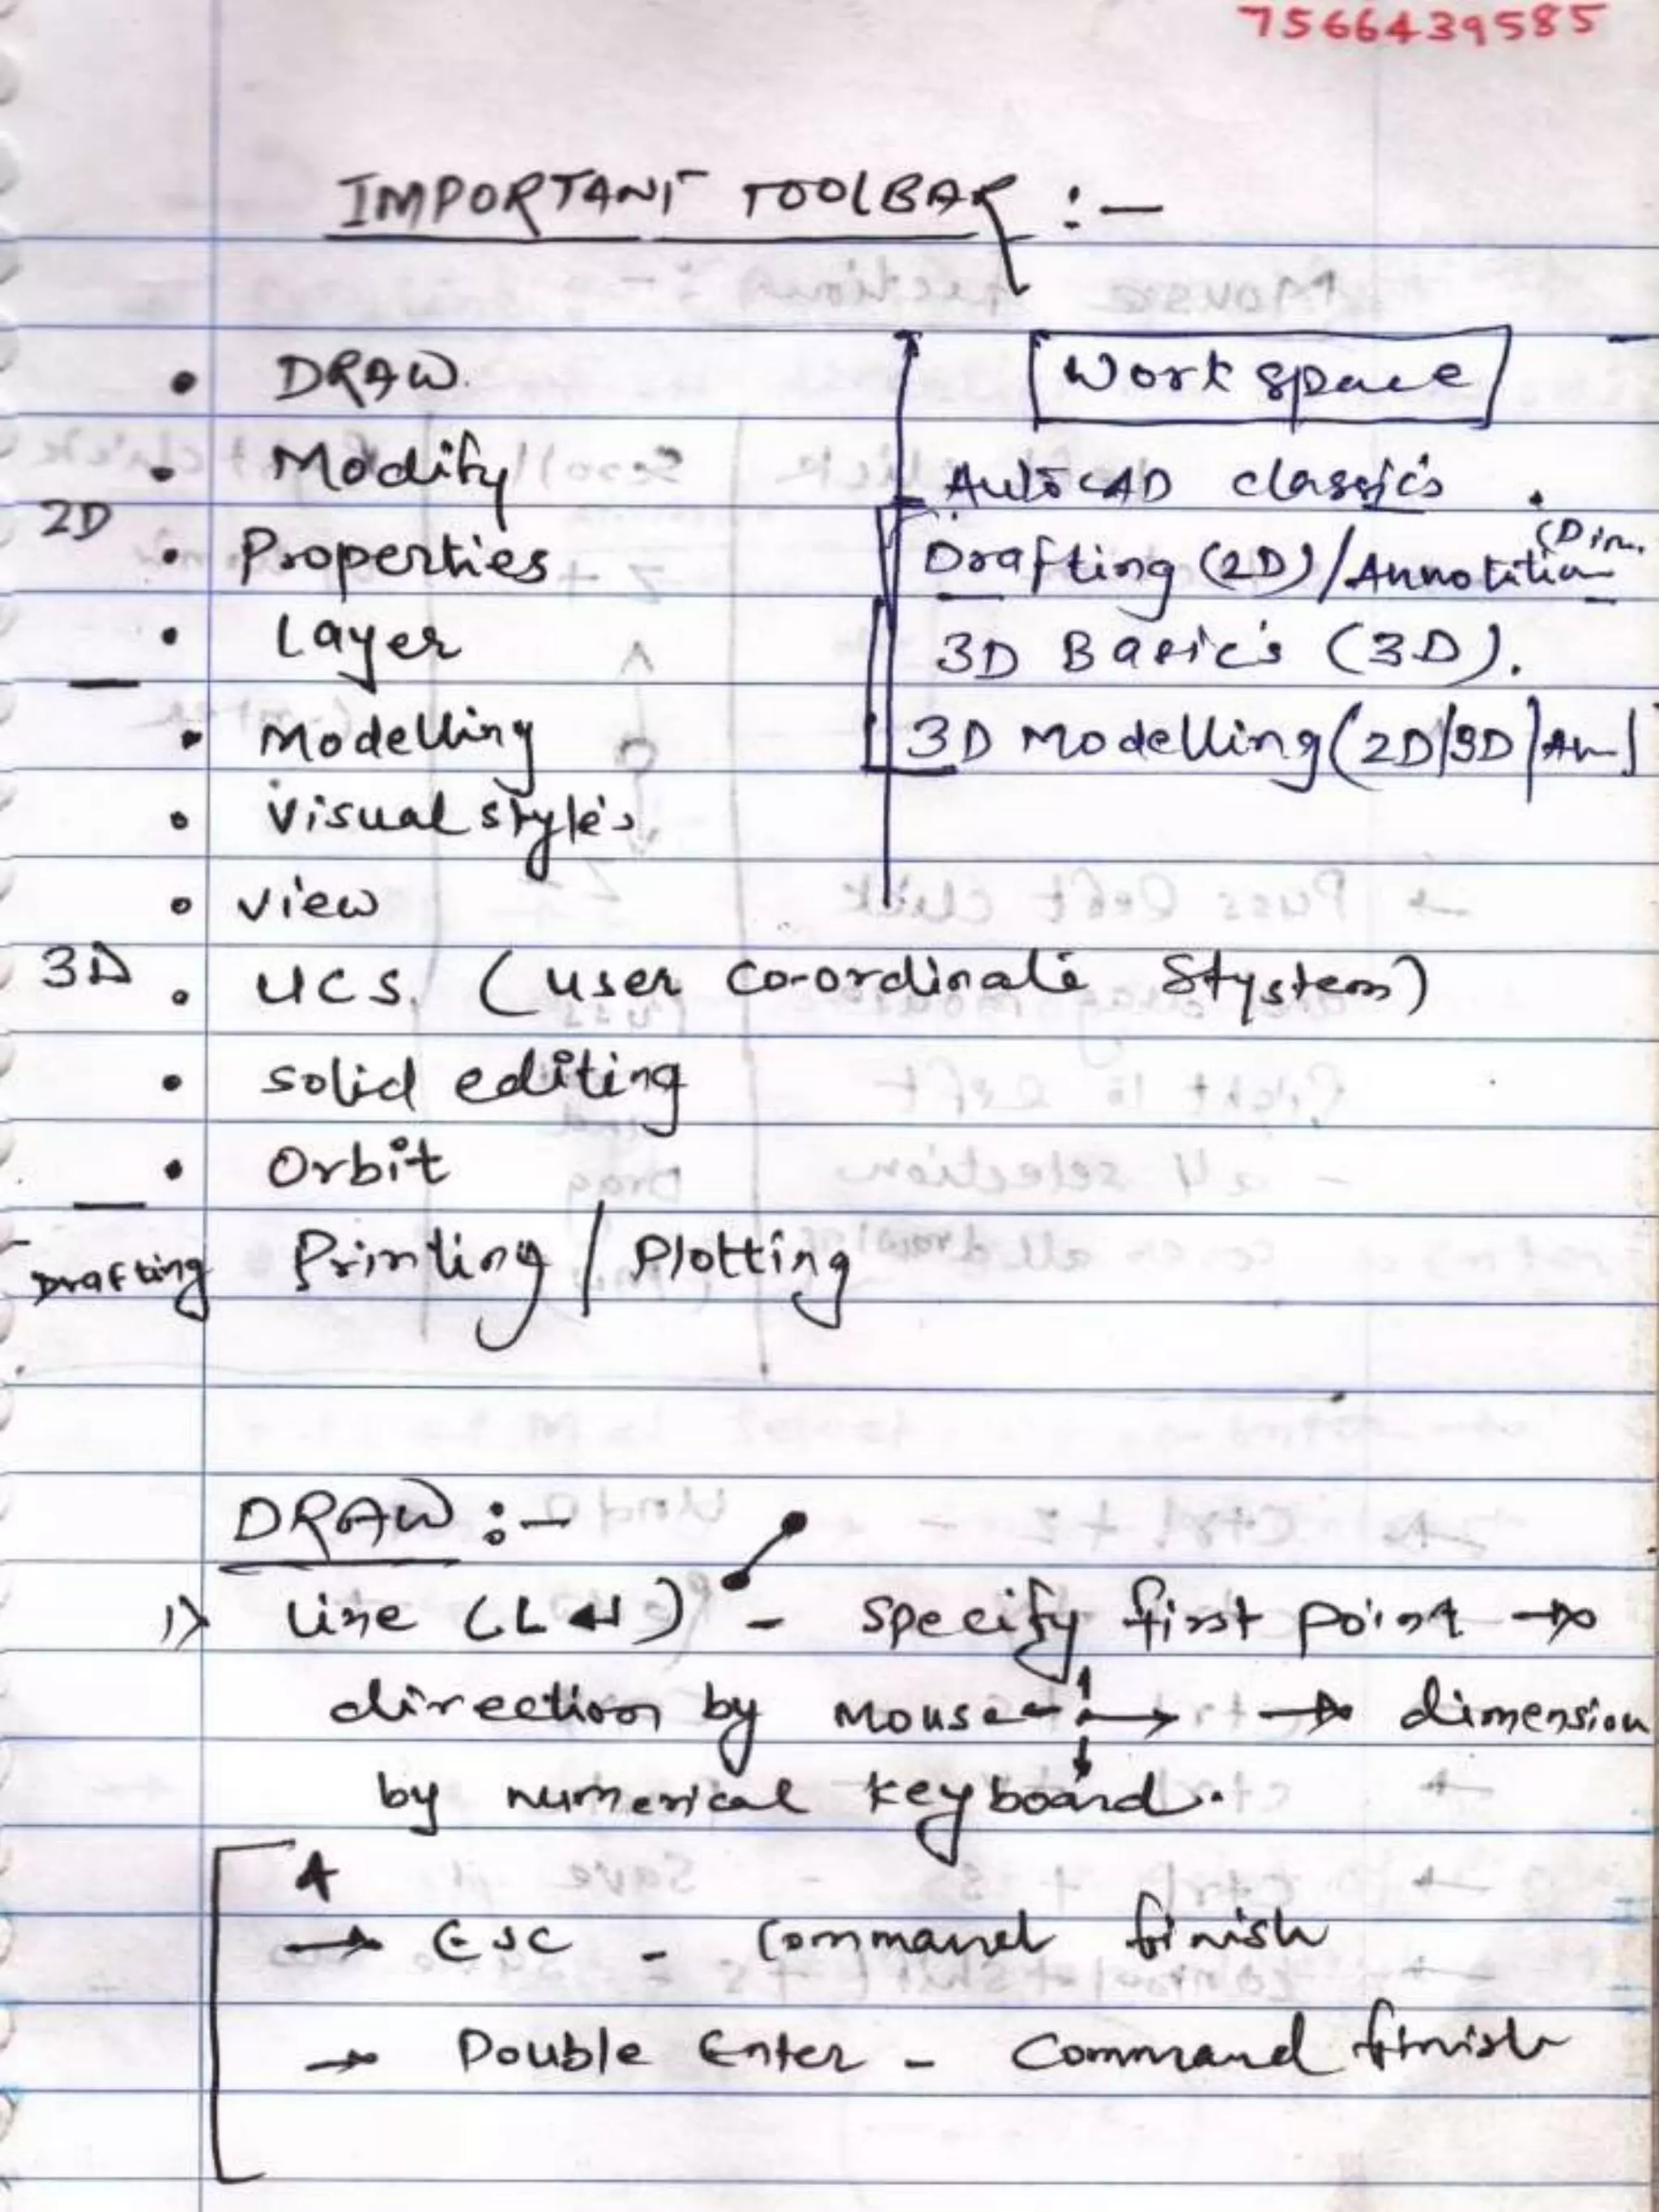 7566439585
IMPORTANT TOOLBAR :-
• DRAW.
• Modify
2D
• Properties
• Layer
• Modelling
• Visual style's
• View
3D
• UCS. (user Co-ordinate Stystem)
• solid editing
• Orbit
Drafting Printing / Plotting
Work space
AutoCAD classic's .
(Dim.
Drafting (2D)/Annotation
3D Basic's (3D).
3D Modelling (2D/3D/An)
DRAW :-
1> Line (L ↵) - Specify first point →
direction by mouse → dimension
by numerical keyboard.
→ Esc - Command finish
→ Double Enter - Command finish